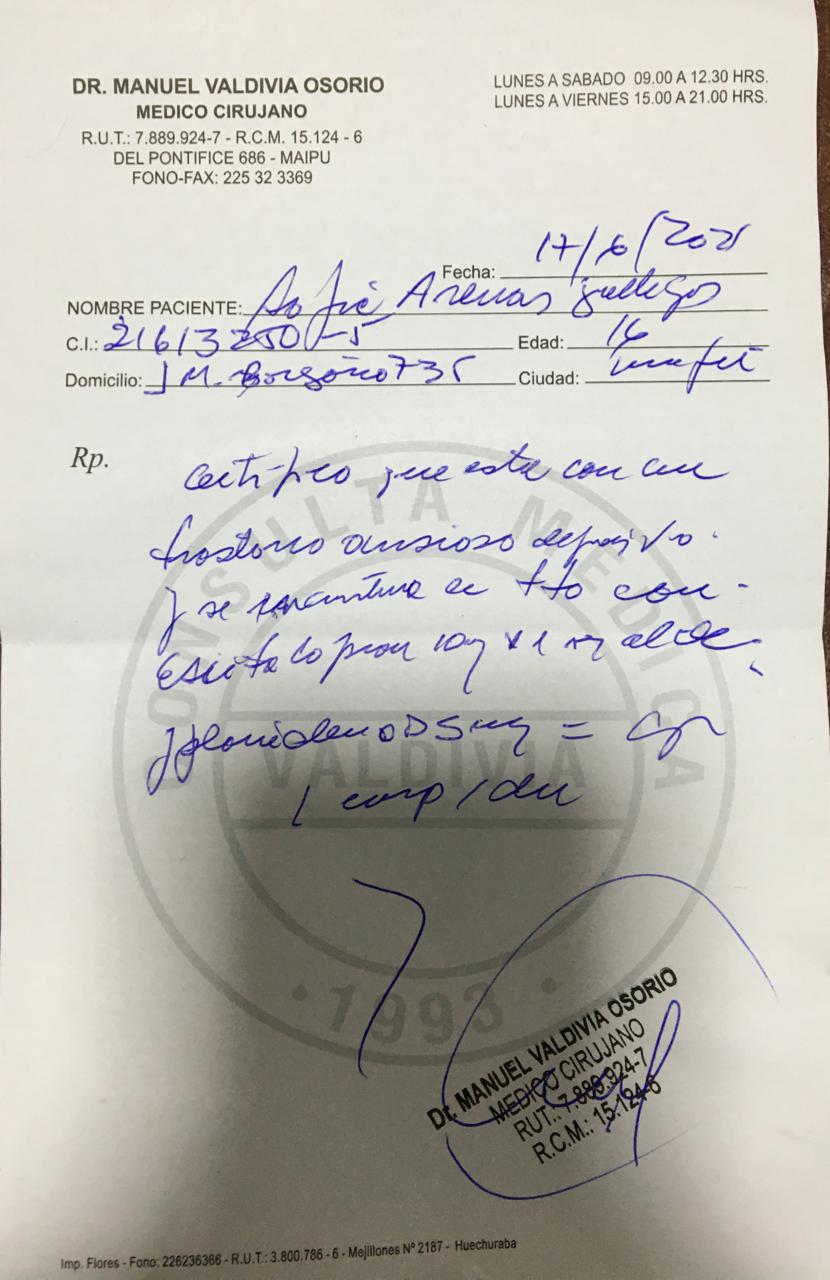 DR. MANUEL VALDIVIA OSORIO
MEDICO CIRUJANO
R.U.T.: 7.889.924-7 - R.C.M. 15.124 - 6
DEL PONTIFICE 686 - MAIPU
FONO-FAX: 225 32 3369
LUNES A SABADO 09.00 A 12.30 HRS.
LUNES A VIERNES 15.00 A 21.00 HRS.
Fecha: 17/6/2021
NOMBRE PACIENTE: Sofia Arenas Gallegos
C.I.: 21613250-5 Edad: 16
Domicilio: J M. Borgoño 735 Ciudad: Maipú
Rp.
Certifico que esta con un
trastorno ansioso depresivo
y se encuentra en tto con
Escitalopram 10mg x 1 al dia
1 comp / dia
CONSULTA MEDICA
VALDIVIA
• 1993 •
Dr. MANUEL VALDIVIA OSORIO
MEDICO CIRUJANO
RUT.: 7.889.924-7
R.C.M.: 15.124-6
Imp. Flores - Fono: 226236366 - R.U.T.: 3.800.786 - 6 - Mejillones Nº 2187 - Huechuraba